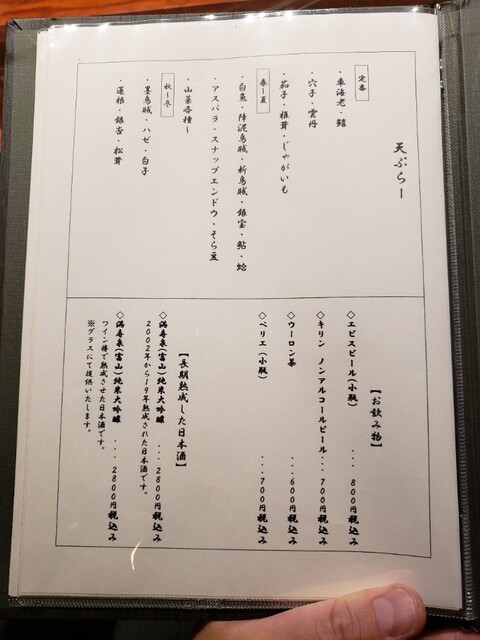 天ぷらー
定番
・車海老・鱚
・穴子・雲丹
・茄子・椎茸・じゃがいも
春〜夏
・白魚・障泥烏賊・新烏賊・銀宝・鮎・蛤
・アスパラ・スナップエンドウ・そら豆
・山菜各種〜
秋〜冬
・墨烏賊・ハゼ・白子
・蓮根・銀杏・松茸
【お飲み物】
◇エビスビール(小瓶) ・・・800円税込み
◇キリン ノンアルコールビール・・・700円税込み
◇ウーロン茶 ・・・600円税込み
◇ペリエ(小瓶) ・・・700円税込み
【長期熟成した日本酒】
◇満寿泉(富山)純米大吟醸 ・・・2800円税込み
2002年から19年熟成された日本酒です。
◇満寿泉(富山)純米大吟醸 ・・・2800円税込み
ワイン樽で熟成させた日本酒です。
※グラスにて提供いたします。